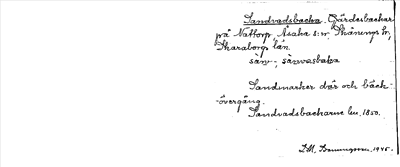 Sandvadsbacka. Gärdesbackar
på Nattorp, Åsaka s:n Skånings hd,
Skaraborgs län.
sàn-, sànvasbaka
Sandmarker där och bäck-
övergång.
Sandvadsbackarne lm. 1850.
1945.